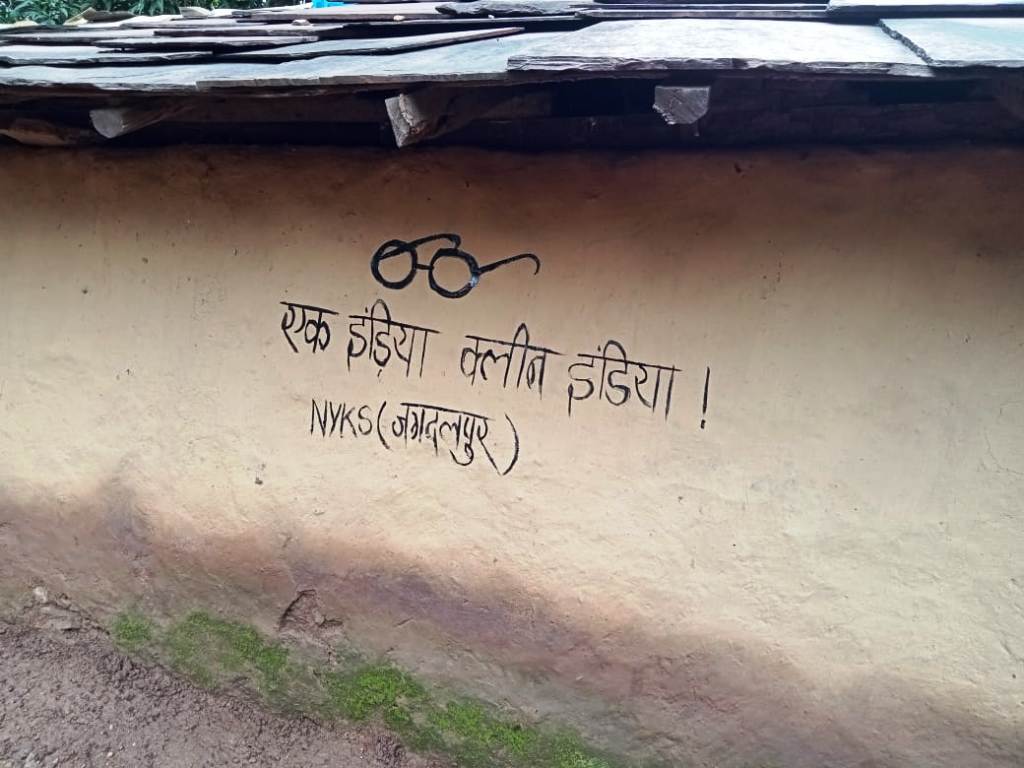 एक इंड़िया क्लीन इंडिया !
NYKS (जगदलपुर)